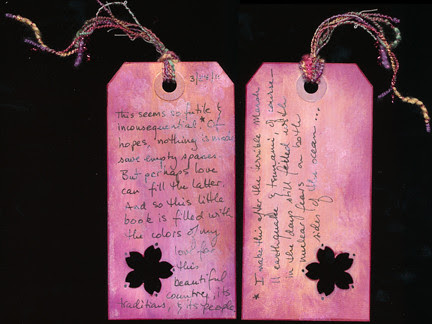 3/29/11
This seems so futile &
inconsequential.* Of
hopes, nothing is now
save empty spaces.
But perhaps love
can fill the latter.
And so this little
book is filled with
the colors of my
love for
this
beautiful
country, its
traditions, & its people
* I make this after the terrible March
11 earthquake & tsunami, of course -
in the days still filled with
nuclear fears on both
sides of the ocean...